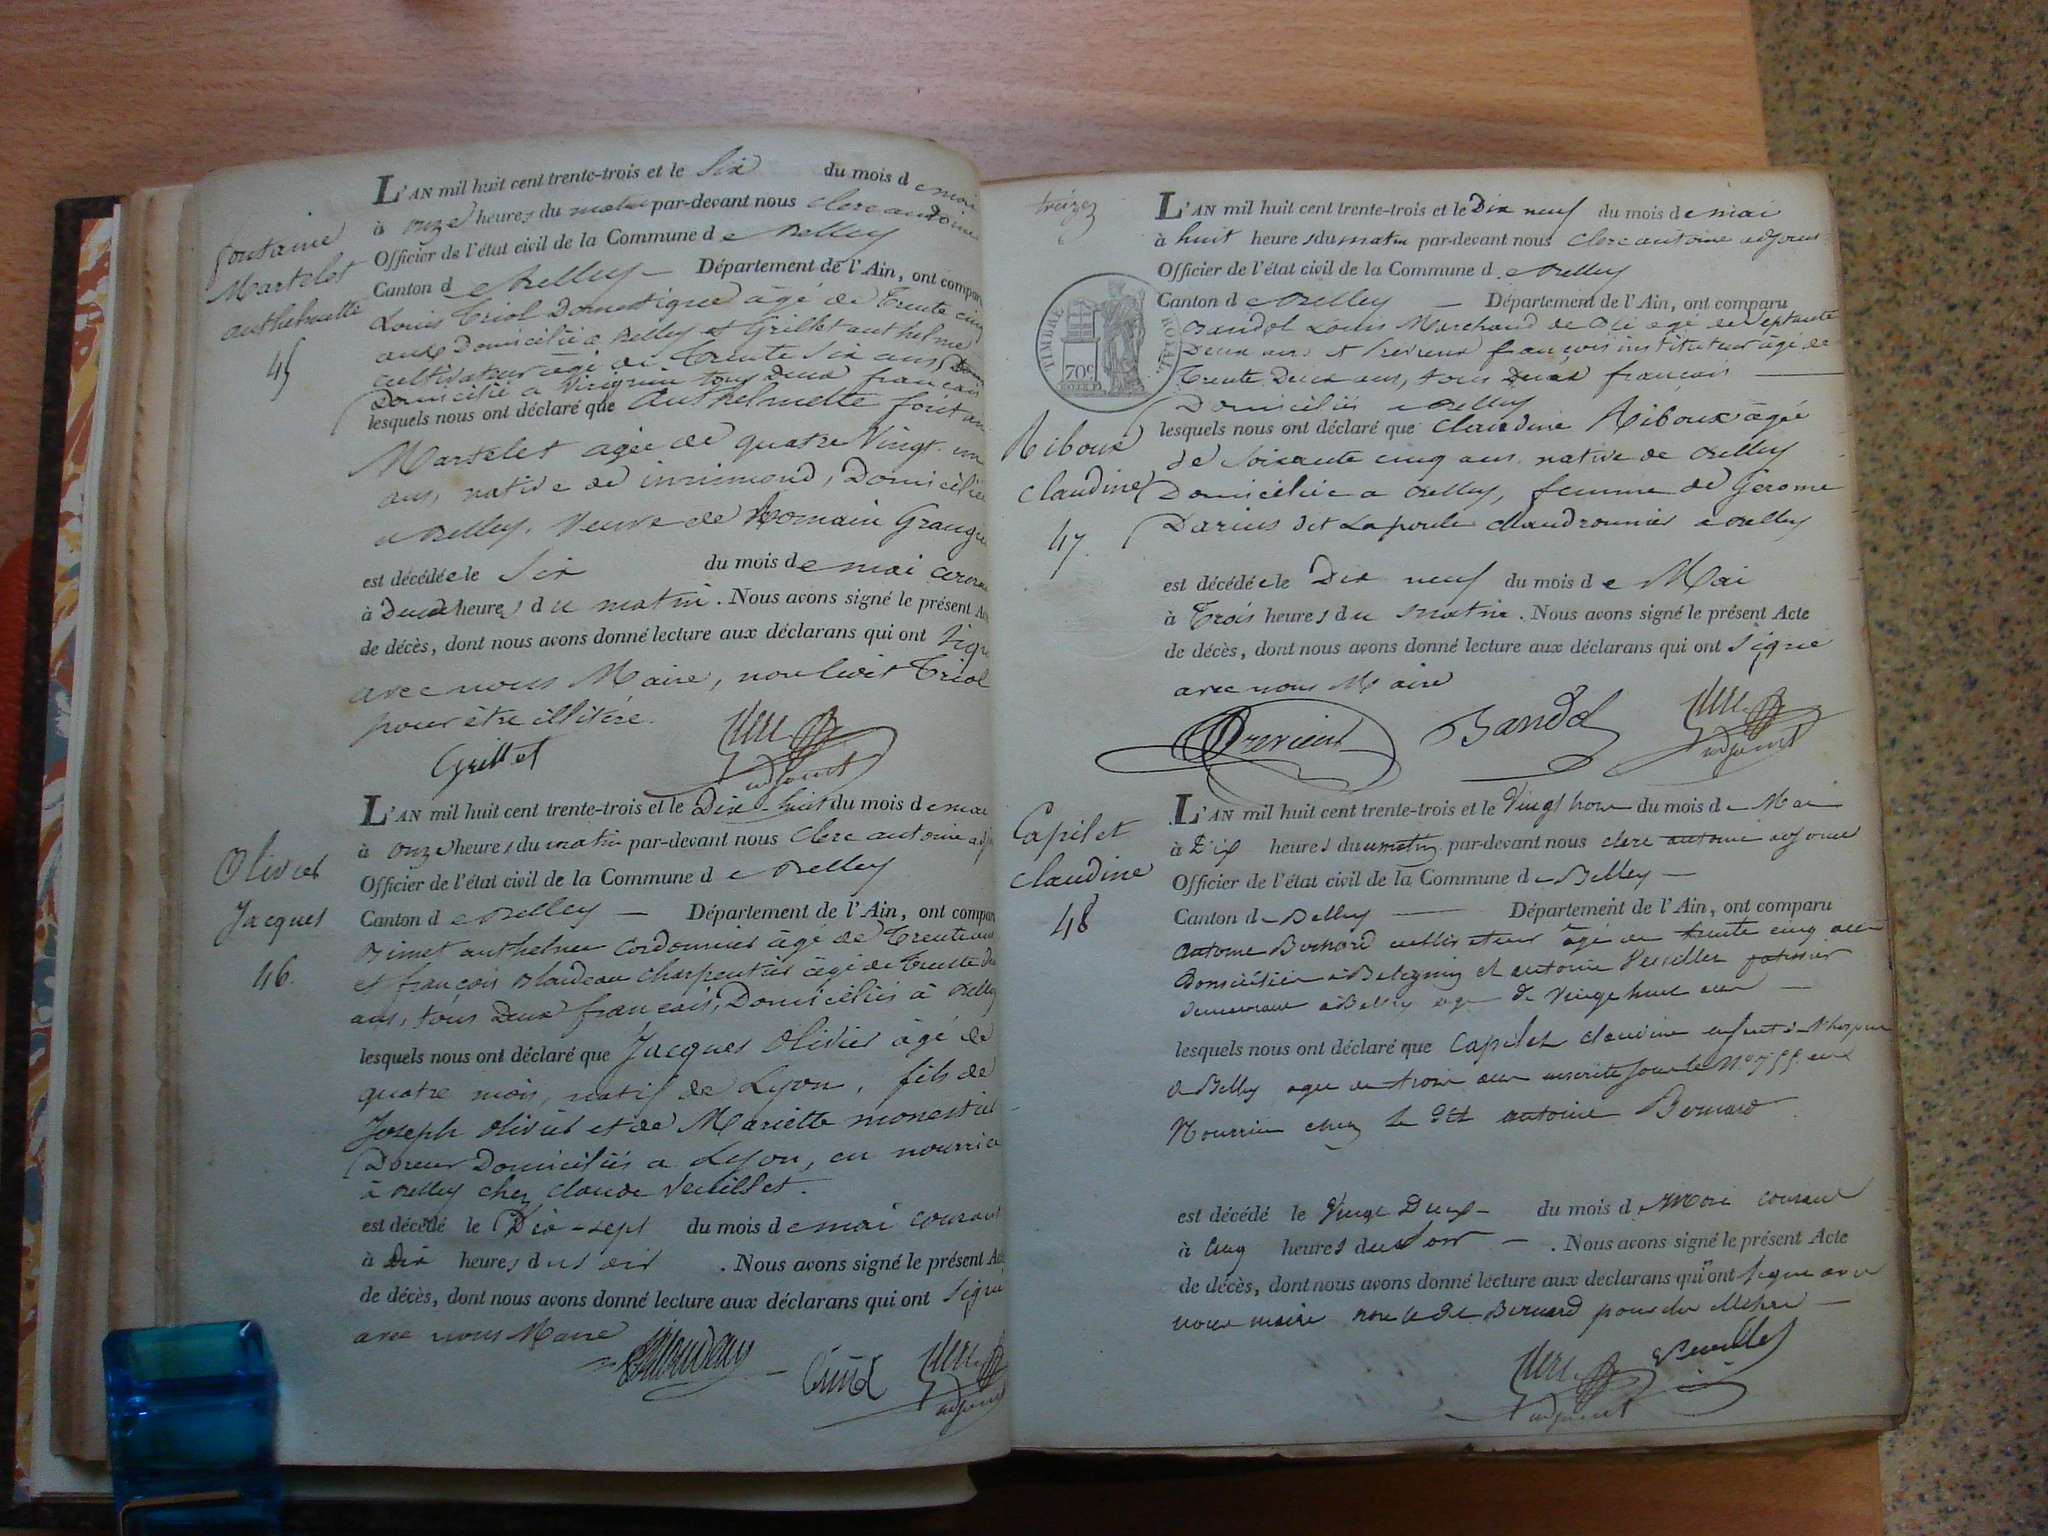 L'AN mil huit cent trente-trois et le Six du mois de mai
à onze heures du matin par-devant nous Clerc antoine
Officier de l'état civil de la Commune de Belley
Canton de Belley — Département de l'Ain, ont comparu
Louis Triol Domestique âgé de Trente cinq
ans Domicilié a Belley et Grillet anthelme
cultivateur âgé de Trente Six ans,
Domicilié a Virignin tous deux francais
lesquels nous ont déclaré que Anthelmette fontaine
Martelet agée de quatre Vingt un
ans, native de inimond, Domiciliée
a Belley, Veuve de Romain Grangé
est décédée le Six du mois de mai courant
à Deux heures du matin. Nous avons signé le présent Acte
de décès, dont nous avons donné lecture aux déclarans qui ont signé
avec nous Maire, non ledit Triol
pour être illitéré.
Grillet
Clerc
adjoint
fontaine
Martelet
anthelmette
45
L'AN mil huit cent trente-trois et le Dix-huit du mois de mai
à onze heures du matin par-devant nous Clerc antoine adj
Officier de l'état civil de la Commune de Belley
Canton de Belley — Département de l'Ain, ont comparu
anthelme Cordonnier âgé de Trente ans
et françois Blandeau charpentier âgé de Trente
ans, tous Deux francais, Domiciliés à Belley
lesquels nous ont déclaré que Jacques Olivier âgé de
quatre mois, natif de Lyon, fils de
Joseph Olivier et de Mariette monestier
Doreur Domiciliés a Lyon, en nourrice
à Belley chez Claude Veuillet.
est décédé le Dix-sept du mois de mai courant
à Dix heures du soir. Nous avons signé le présent Acte
de décès, dont nous avons donné lecture aux déclarans qui ont signé
avec nous Maire
Clerc
adjoint
Olivier
Jacques
46.
treize
TIMBRE ROYAL.
70c
L'AN mil huit cent trente-trois et le Dix neuf du mois de mai
à huit heures du matin par-devant nous Clerc antoine adjoint
Officier de l'état civil de la Commune de Belley
Canton de Belley — Département de l'Ain, ont comparu
Bandol Louis Marchand de Blé agé de Septante
Deux ans et françois instituteur âgé de
Trente Deux ans, tous Deux francais —
Domiciliés a Belley
lesquels nous ont déclaré que Claudine Riboux âgée
de Soixante cinq ans native de Belley
Domiciliée a Belley, femme de Gerome
Darius dit Lapoule Chaudronnier a Belley
est décédée le Dix neuf du mois de Mai
à Trois heures du matin. Nous avons signé le présent Acte
de décès, dont nous avons donné lecture aux déclarans qui ont signé
avec nous Maire
Bandol
Clerc
adjoint
Riboux
Claudine
47.
L'AN mil huit cent trente-trois et le Vingt trois du mois de Mai
à Dix heures du matin par-devant nous clerc antoine adjoint
Officier de l'état civil de la Commune de Belley —
Canton de Belley — Département de l'Ain, ont comparu
antoine Bernard cultivateur âgé de trente cinq ans
Domicilié a et antoine Veuillet
demeurant a Belley age de Vingt huit ans —
lesquels nous ont déclaré que Capilet claudine enfant de l'hospice
de Belley agee de trois ans inscrite sous le N°
Nourrie chez le dit antoine Bernard
est décédé le Vingt Deux — du mois de Mai courant
à cinq heures du soir —. Nous avons signé le présent Acte
de décès, dont nous avons donné lecture aux déclarans qui ont signé avec
nous maire non le dit Bernard pour —
Clerc
adjoint
Veuillet
Capilet
claudine
48